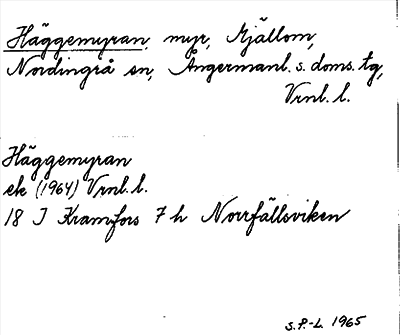 Häggemyran, myr, Mjällom,
Nordingrå sn, Ångermanl. s. doms. tg,
Vrnl. l.
Häggemyran
ek (1964) Vrnl. l.
18 I Kramfors 7 h Norrfällsviken
S.P.-L. 1965